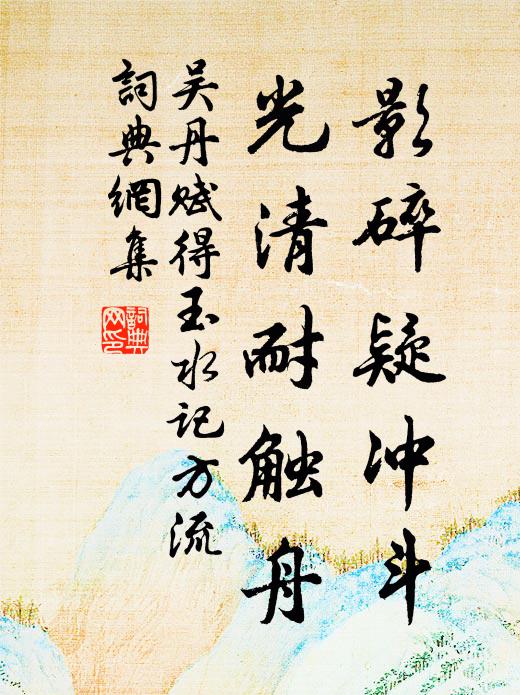 影碎疑冲斗
光清耐触舟
吴丹赋得玉水记方流
詞典網集
詞典
网印